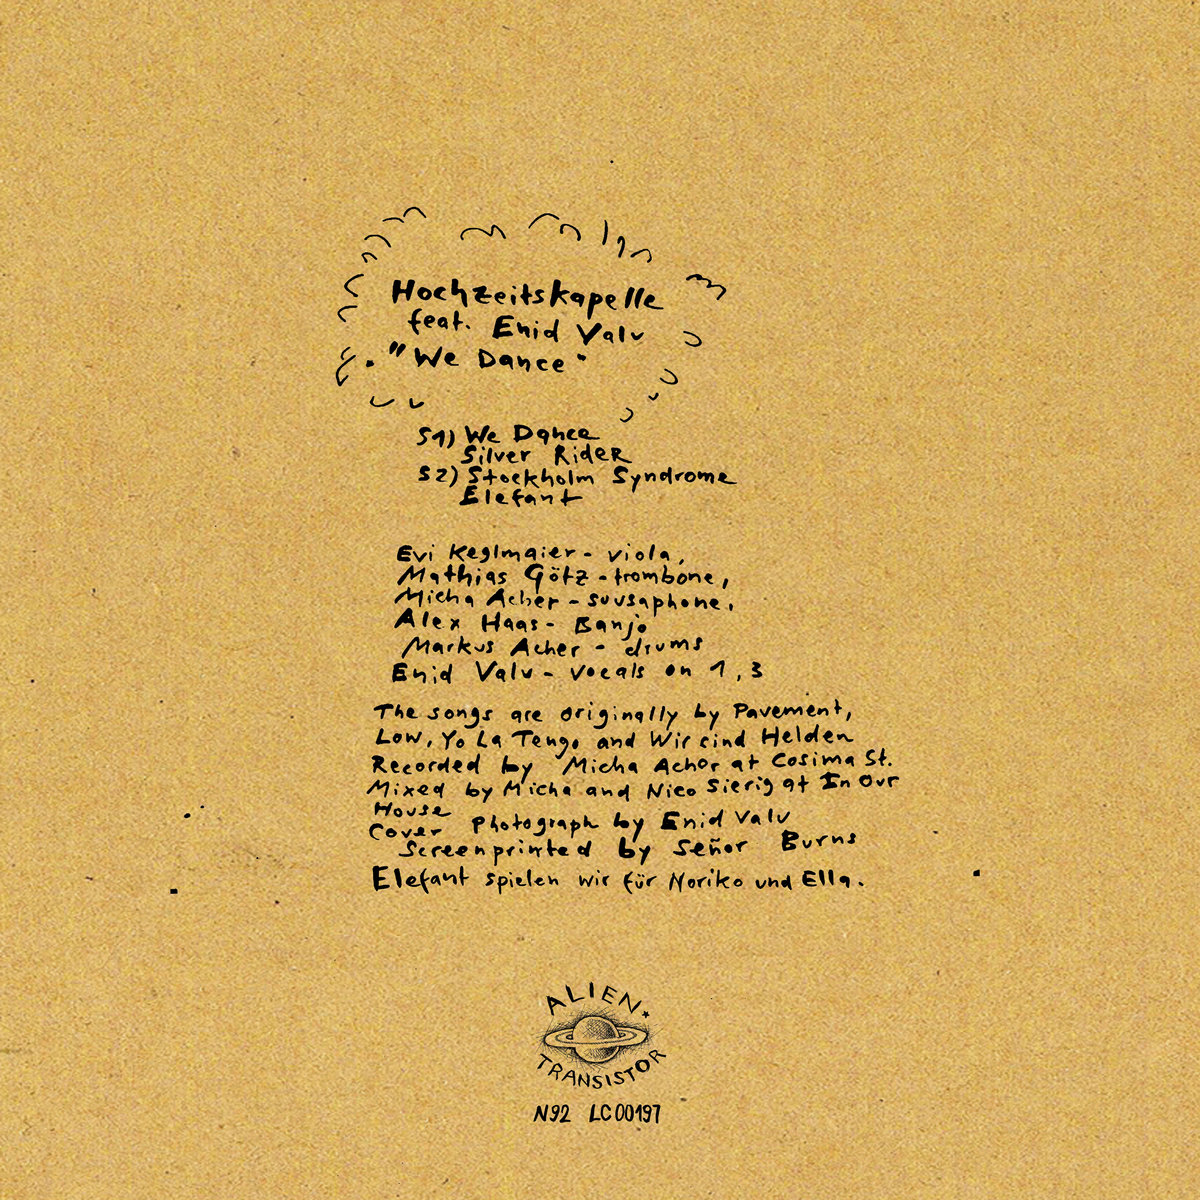 Hochzeitskapelle
feat. Enid Valu
"We Dance"
S1) We Dance
Silver Rider
S2) Stockholm Syndrome
Elefant
Evi Keglmaier - viola,
Mathias Götz - trombone,
Micha Acher - suusaphone,
Alex Haas - Banjo
Markus Acher - drums
Enid Valu - vocals on 1, 3
The songs are originally by Pavement,
Low, Yo La Tengo and Wir sind Helden
Recorded by Micha Acher at Cosima St.
Mixed by Micha and Nico Sierig at In Our
House
Cover Photograph by Enid Valu
Screenprinted by Señor Burns
Elefant spielen wir für Noriko und Ella.
ALIEN
TRANSISTOR
N92 LC00197